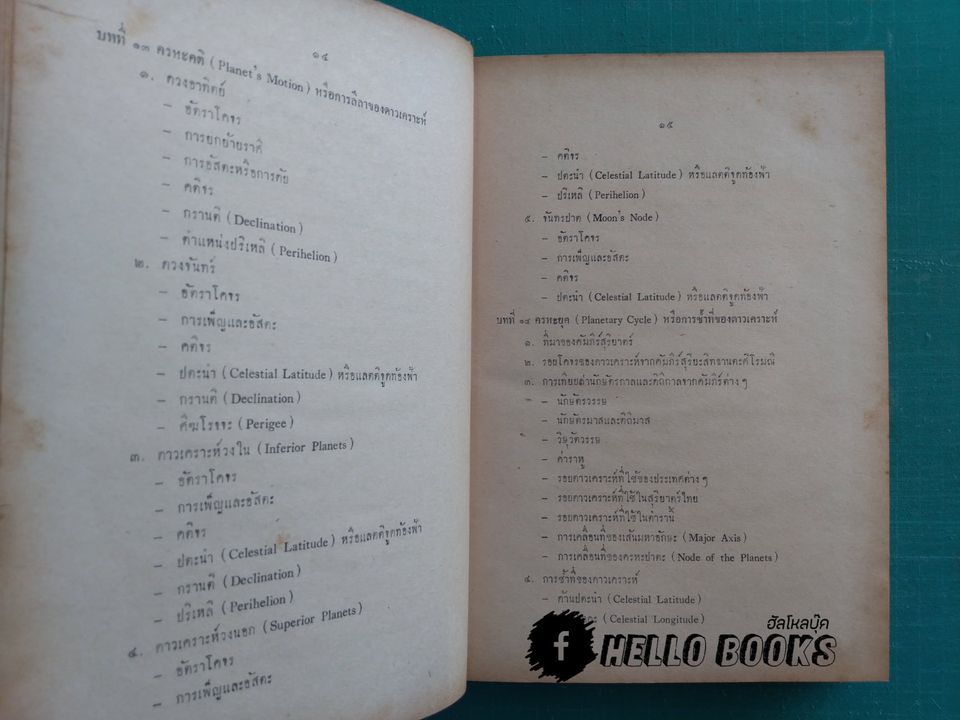 ๑๔
บทที่ ๑๓ ครหะคติ (Planet's Motion) หรือการลีลาของดาวเคราะห์
๑. ดวงอาทิตย์
– อัตราโคจร
– การยกย้ายราศี
– การอัสตะหรือการดับ
– คติจร
– กรานติ (Declination)
– ตำแหน่งปริเหลิ (Perihelion)
๒. ดวงจันทร์
– อัตราโคจร
– การเพ็ญและอัสตะ
– คติจร
– ปตะนำ (Celestial Latitude) หรือแลตติจูดท้องฟ้า
– กรานติ (Declination)
– ศิฆโรจจะ (Perigee)
๓. ดาวเคราะห์วงใน (Inferior Planets)
– อัตราโคจร
– การเพ็ญและอัสตะ
– คติจร
– ปตะนำ (Celestial Latitude) หรือแลตติจูดท้องฟ้า
– กรานติ (Declination)
– ปริเหลิ (Perihelion)
๔. ดาวเคราะห์วงนอก (Superior Planets)
– อัตราโคจร
– การเพ็ญและอัสตะ
๑๕
– คติจร
– ปตะนำ (Celestial Latitude) หรือแลตติจูดท้องฟ้า
– ปริเหลิ (Perihelion)
๕. จันทรปาต (Moon's Node)
– อัตราโคจร
– การเพ็ญและอัสตะ
– คติจร
– ปตะนำ (Celestial Latitude) หรือแลตติจูดท้องฟ้า
บทที่ ๑๔ ครหะยุค (Planetary Cycle) หรือการซ้ำที่ของดาวเคราะห์
๑. ที่มาของคัมภิร์สุริยาตร์
๒. รอบโคจรของดาวเคราะห์จากคัมภิร์สุริยะสิทธานตะศิโรมณิ
๓. การเทียบลำนักษัตรกาลและติถิกาลจากคัมภิร์ต่าง ๆ
– นักษัตรวรรษ
– นักษัตรมาสและติถิมาส
– วิษุวัตวรรษ
– ค่าราหู
– รอบดาวเคราะห์ที่ใช้ของประเทศต่าง ๆ
– รอบดาวเคราะห์ที่ใช้ในสุริยาตร์ไทย
– รอบดาวเคราะห์ที่ใช้ในตำรานี้
– การเคลื่อนที่ของเส้นมหาอักษะ (Major Axis)
– การเคลื่อนที่ของครหะปาตะ (Node of the Planets)
๔. การซ้ำที่ของดาวเคราะห์
– ด้านปตะนำ (Celestial Latitude)
(Celestial Longitude)
ฮัลโหลบุ๊ค
f HELLO BOOKS